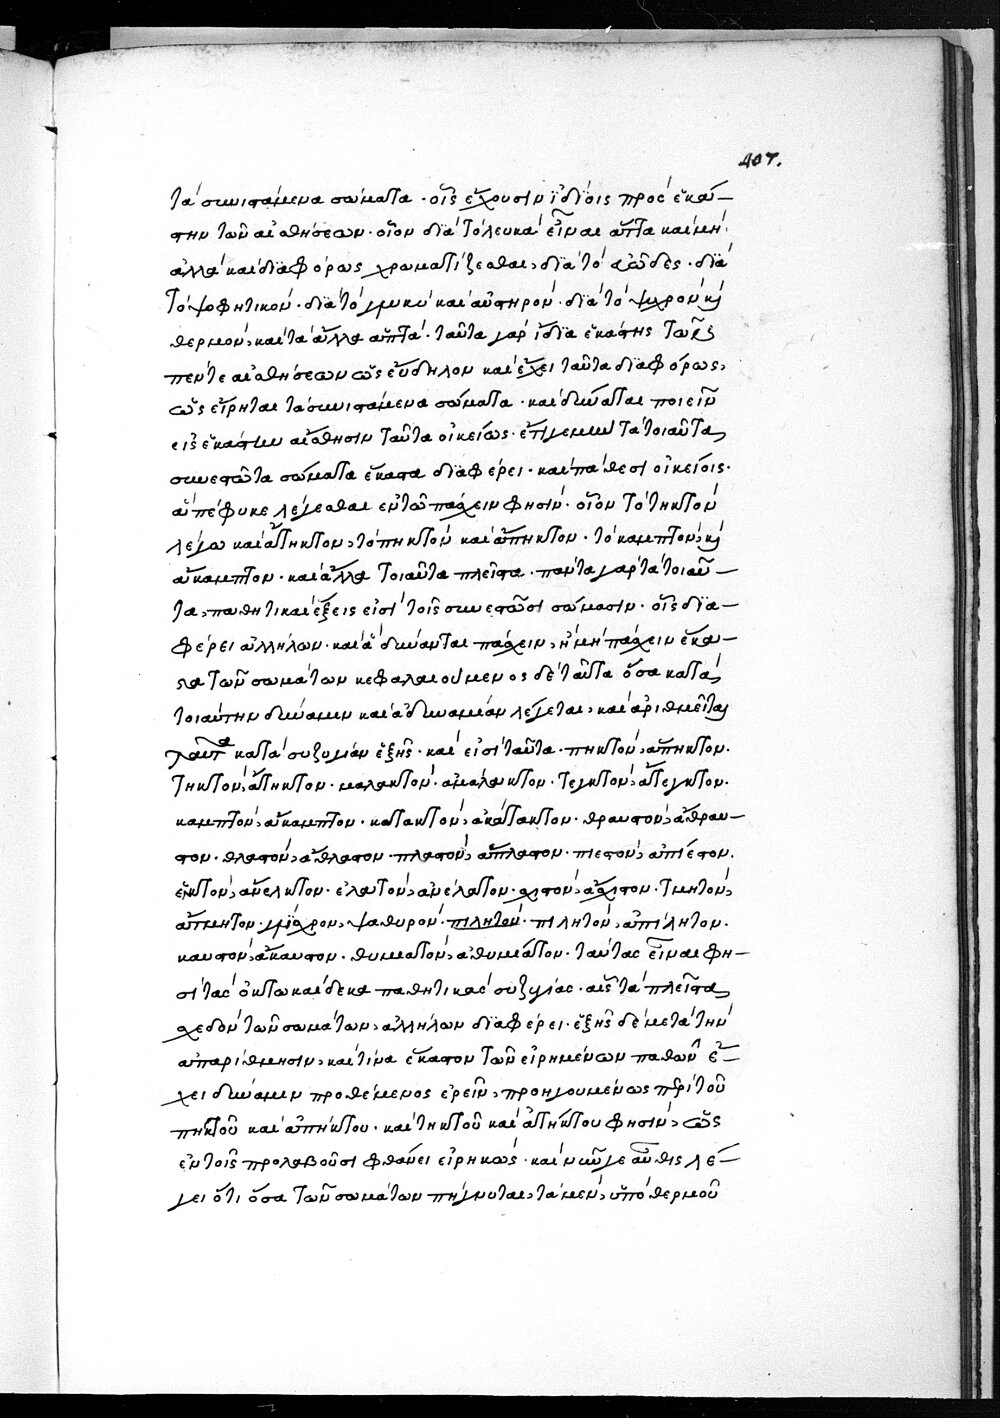 407.
τὰ συνιστάμενα σώματα · οἷς ἔχουσιν ἰδίοις πρὸς ἑκά-
στην τῶν αἰσθήσεων · οἷον διὰ τὸ λευκὰ εἶναι ἅττα καὶ μὴ ·
ἀλλὰ καὶ διαφόρως χρωματίζεσθαι, διὰ τὸ εὐῶδες · διὰ
τὸ ψοφητικὸν · διὰ τὸ γλυκὺ καὶ αὐστηρὸν · διὰ τὸ ψυχρὸν καὶ
θερμὸν, καὶ τὰ ἄλλα ἁπτὰ · ταῦτα γὰρ ἴδια ἑκάστης τῶν
πέντε αἰσθήσεων ὡς εὔδηλον καὶ ἔχει ταῦτα διαφόρως,
ὡς εἴρηται τὰ συνιστάμενα σώματα · καὶ δύναται ποιεῖν
εἰς ἑκάστην αἴσθησιν ταῦτα οἰκείως · ἔτι γε μὴν τὰ τοιαῦτα
συνεστῶτα σώματα ἕκαστα διαφέρει · καὶ πάθεσι οἰκείοις ·
ἃ πέφυκε λέγεσθαι ἐν τῷ πάσχειν φησὶν · οἷον τὸ τηκτὸν
λέγω καὶ ἄτηκτον, τὸ πηκτὸν καὶ ἄπηκτον · τὸ καμπτὸν, καὶ
ἄκαμπτον · καὶ ἄλλα τοιαῦτα πλεῖστα · πάντα γὰρ τὰ τοιαῦ-
τα, παθητικαὶ ἕξεις εἰσὶ τοῖς συνεστῶσι σώμασιν · οἷς δια-
φέρει ἀλλήλων · καὶ ἃ δύνανται πάσχειν, ἢ μὴ πάσχειν ἕκα-
στα τῶν σωμάτων κεφαλαιούμενος δὲ ταῦτα ὅσα κατὰ
τοιαύτην δύναμιν καὶ ἀδυναμίαν λέγεται, καὶ ἀριθμεῖται
ταῦτα κατὰ συζυγίαν ἑξῆς · καὶ εἰσὶ ταῦτα · πηκτὸν, ἄπηκτον ·
τηκτὸν, ἄτηκτον · μαλακτὸν, ἀμάλακτον · τεγκτὸν, ἄτεγκτον ·
καμπτὸν, ἄκαμπτον · κατακτὸν, ἀκάτακτον · θραυστὸν, ἄθραυ-
στον · θλαστὸν, ἄθλαστον · πλαστὸν, ἄπλαστον · πιεστὸν, ἀπίεστον ·
ἑλκτὸν, ἄνελκτον · ἐλατὸν, ἀνέλατον · σχιστὸν, ἄσχιστον · τμητὸν,
ἄτμητον · γλίσχρον, ψαθυρὸν · πιλητὸν · πιλητὸν, ἀπίλητον ·
καυστὸν, ἄκαυστον · θυμιατὸν, ἀθυμίατον · ταύτας εἶναι φη-
σὶ τὰς ὀκτωκαίδεκα παθητικὰς συζυγίας · αἷς τὰ πλεῖστα
σχεδὸν τῶν σωμάτων, ἀλλήλων διαφέρει · ἑξῆς δὲ μετὰ τὴν
ἀπαρίθμησιν, καὶ τίνα ἕκαστον τῶν εἰρημένων παθῶν ἔ-
χει δύναμιν προθέμενος ἐρεῖν, προηγουμένως περὶ τοῦ
πηκτοῦ καὶ ἀπήκτου · καὶ τηκτοῦ καὶ ἀτήκτου φησὶν, ὡς
ἐν τοῖς προλαβοῦσι φθάνει εἰρηκὼς · καὶ νῦν γε αὖθις λέ-
γει ὅτι ὅσα τῶν σωμάτων πήγνυται, τὰ μὲν, ὑπὸ θερμοῦ